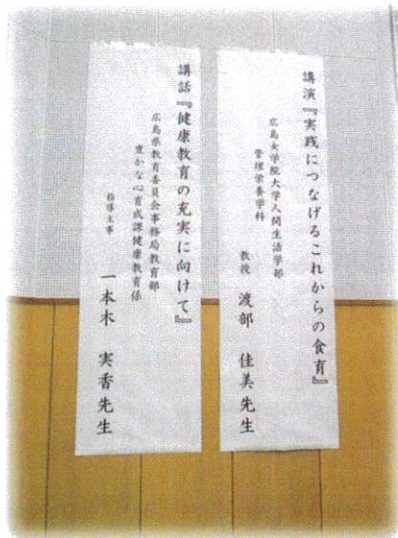 講演『実践につなげるこれからの食育』
広島女学院大学人間生活学部
管理栄養学科
教授　渡部　佳美先生
講話『健康教育の充実に向けて』
広島県教育委員会事務局教育部
豊かな心育成課健康教育係
指導主事　一本木　実香先生